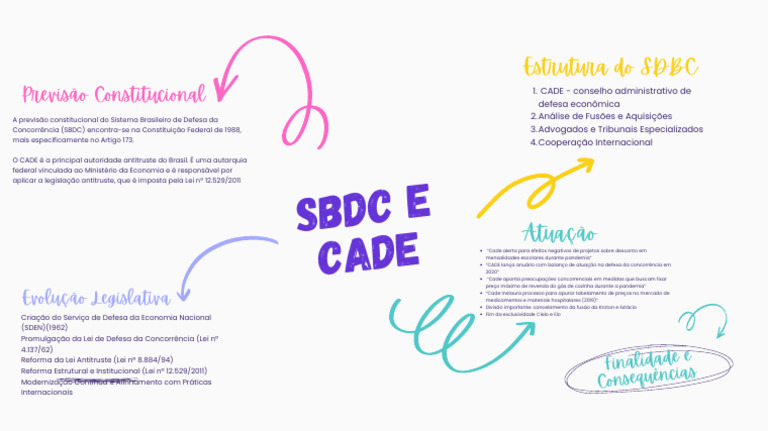 Previsão Constitucional
A previsão constitucional do Sistema Brasileiro de Defesa da
Concorrência (SBDC) encontra-se na Constituição Federal de 1988,
mais especificamente no Artigo 173.
O CADE é a principal autoridade antitruste do Brasil. É uma autarquia
federal vinculada ao Ministério da Economia e é responsável por
aplicar a legislação antitruste, que é imposta pela Lei nº 12.529/2011
Estrutura do SDBC
1. CADE - conselho administrativo de
defesa econômica
2.Análise de Fusões e Aquisições
3.Advogados e Tribunais Especializados
4.Cooperação Internacional
SBDC E
CADE
Atuação
• "Cade alerta para efeitos negativos de projetos sobre desconto em
mensalidades escolares durante pandemia"
• "CADE lança anuário com balanço de atuação na defesa da concorrência em
2020"
• "Cade aponta preocupações concorrenciais em medidas que buscam fixar
preço máximo de revenda do gás de cozinha durante a pandemia"
• "Cade instaura processo para apurar tabelamento de preços no mercado de
medicamentos e materiais hospitalares (2019)"
• Divisão importante: cancelamento da fusão da Kroton e Estácio
• Fim da exclusividade Cielo e Elo
Evolução Legislativa
Criação do Serviço de Defesa da Economia Nacional
(SDEN)(1962)
Promulgação da Lei de Defesa da Concorrência (Lei nº
4.137/62)
Reforma da Lei Antitruste (Lei nº 8.884/94)
Reforma Estrutural e Institucional (Lei nº 12.529/2011)
Modernização Contínua e Alinhamento com Práticas
Internacionais
Finalidade e
Consequências